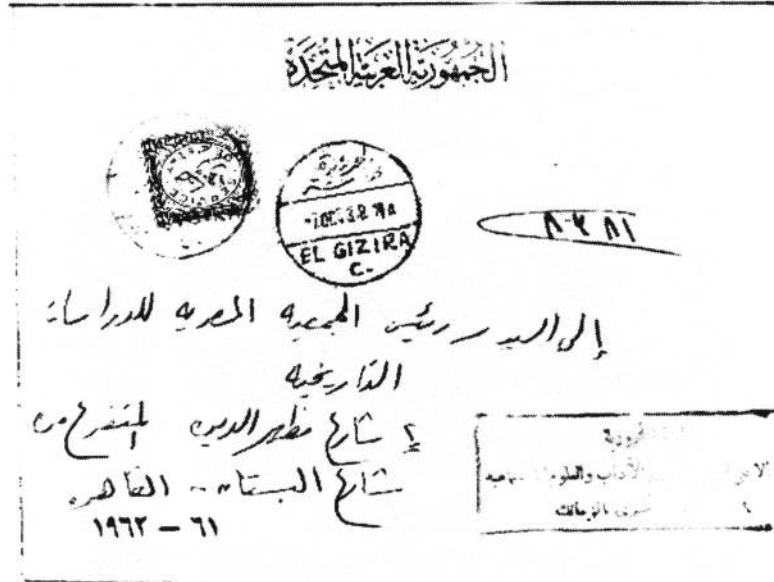 الجمهورية العربية المتحدة
EL GIZIRA
C.-
إلى السيد رئيس الجمعية المصرية للدراسات
التاريخية
٢ شارع مظهر الدين المتفرع من
شارع البستان - القاهره
٦١ – ١٩٦٢
الآداب والعلوم
بالزمالك